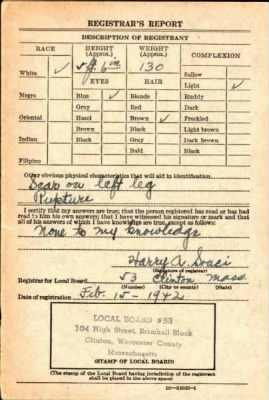 REGISTRAR'S REPORT
DESCRIPTION OF REGISTRANT
RACE HEIGHT (Approx.) WEIGHT (Approx.) COMPLEXION
White ✓ 5 ft. 6 in. 130 Sallow
EYES HAIR Light ✓
Negro Blue ✓ Blonde Ruddy
Gray Red Dark
Oriental Hazel Brown ✓ Freckled
Brown Black Light brown
Indian Black Gray Dark brown
Bald Black
Filipino
Other obvious physical characteristics that will aid in identification
Scar on left leg
Rupture
I certify that my answers are true; that the person registered has read or has had
read to him his own answers; that I have witnessed his signature or mark and that
all of his answers of which I have knowledge are true, except as follows:
None to my knowledge
Harry A.
(Signature of registrar)
Registrar for Local Board 53 Clinton Mass.
(Number) (City or county) (State)
Date of registration Feb. 15 - 1942
LOCAL BOARD #53
104 High Street, Brimhall Block
Clinton, Worcester County
Massachusetts
(STAMP OF LOCAL BOARD)
(The stamp of the Local Board having jurisdiction of the registrant
shall be placed in the above space)